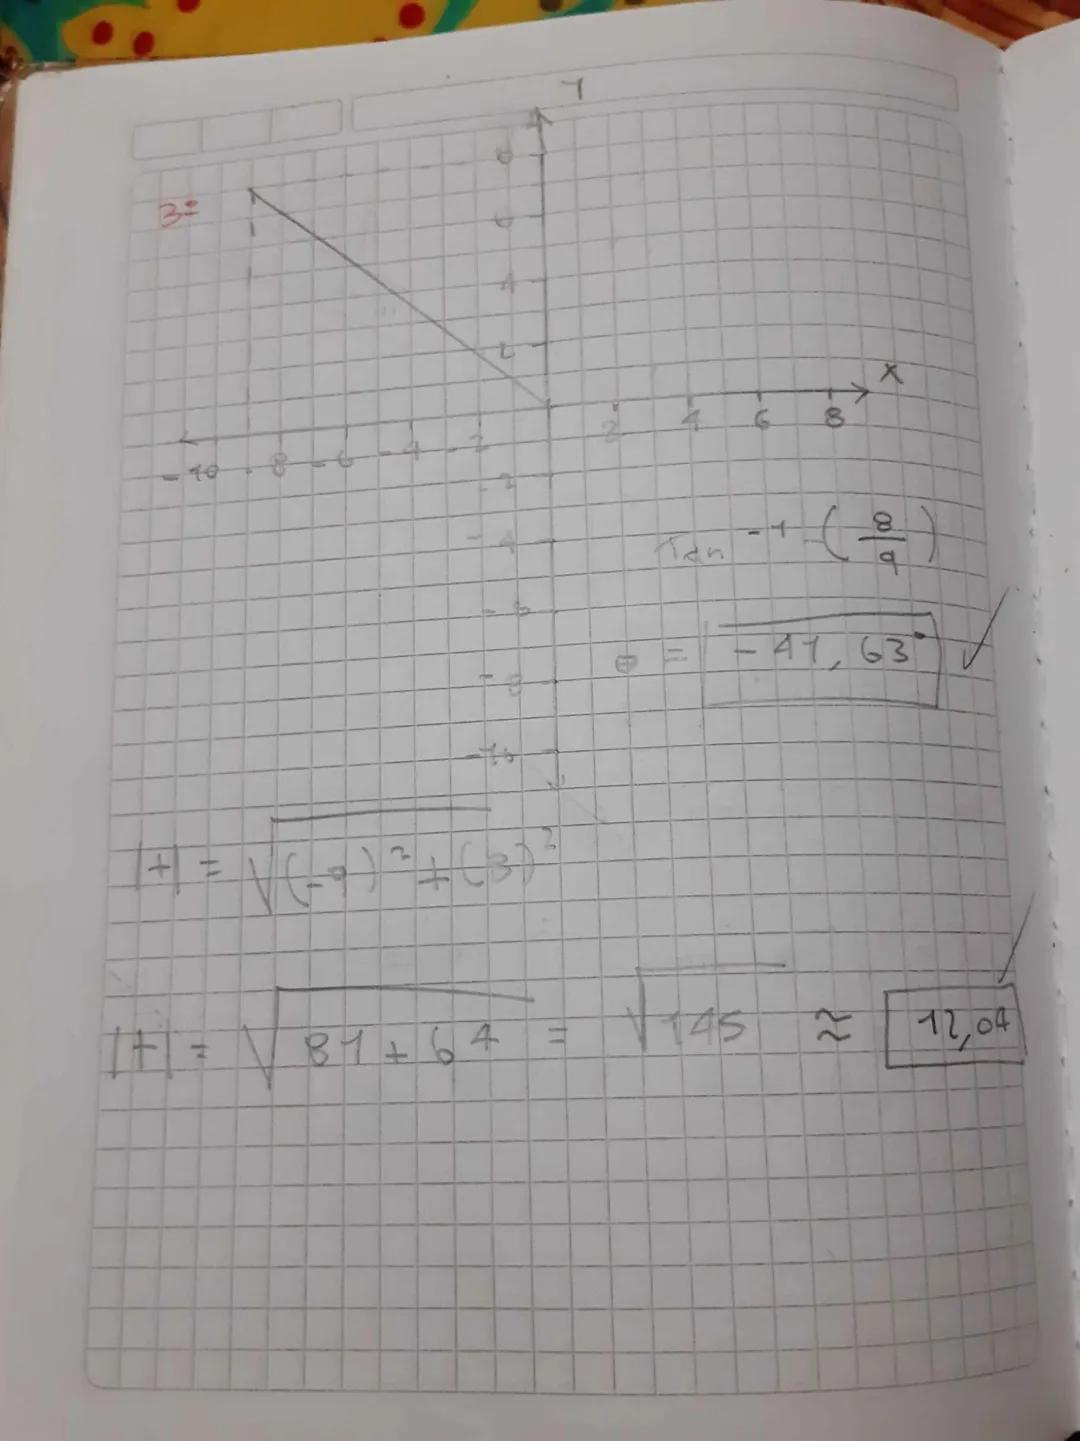 Y
8
3=
6
4
2
X
-10 -8 -6 -4 -2 2 4 6 8
-2
-4
Tan⁻¹ (8/9)
-6
θ = -41,63°
-8
-10
|t| = √(-9)² + (8)²
|t| = √81 + 64 = √145 ≈ 12,04